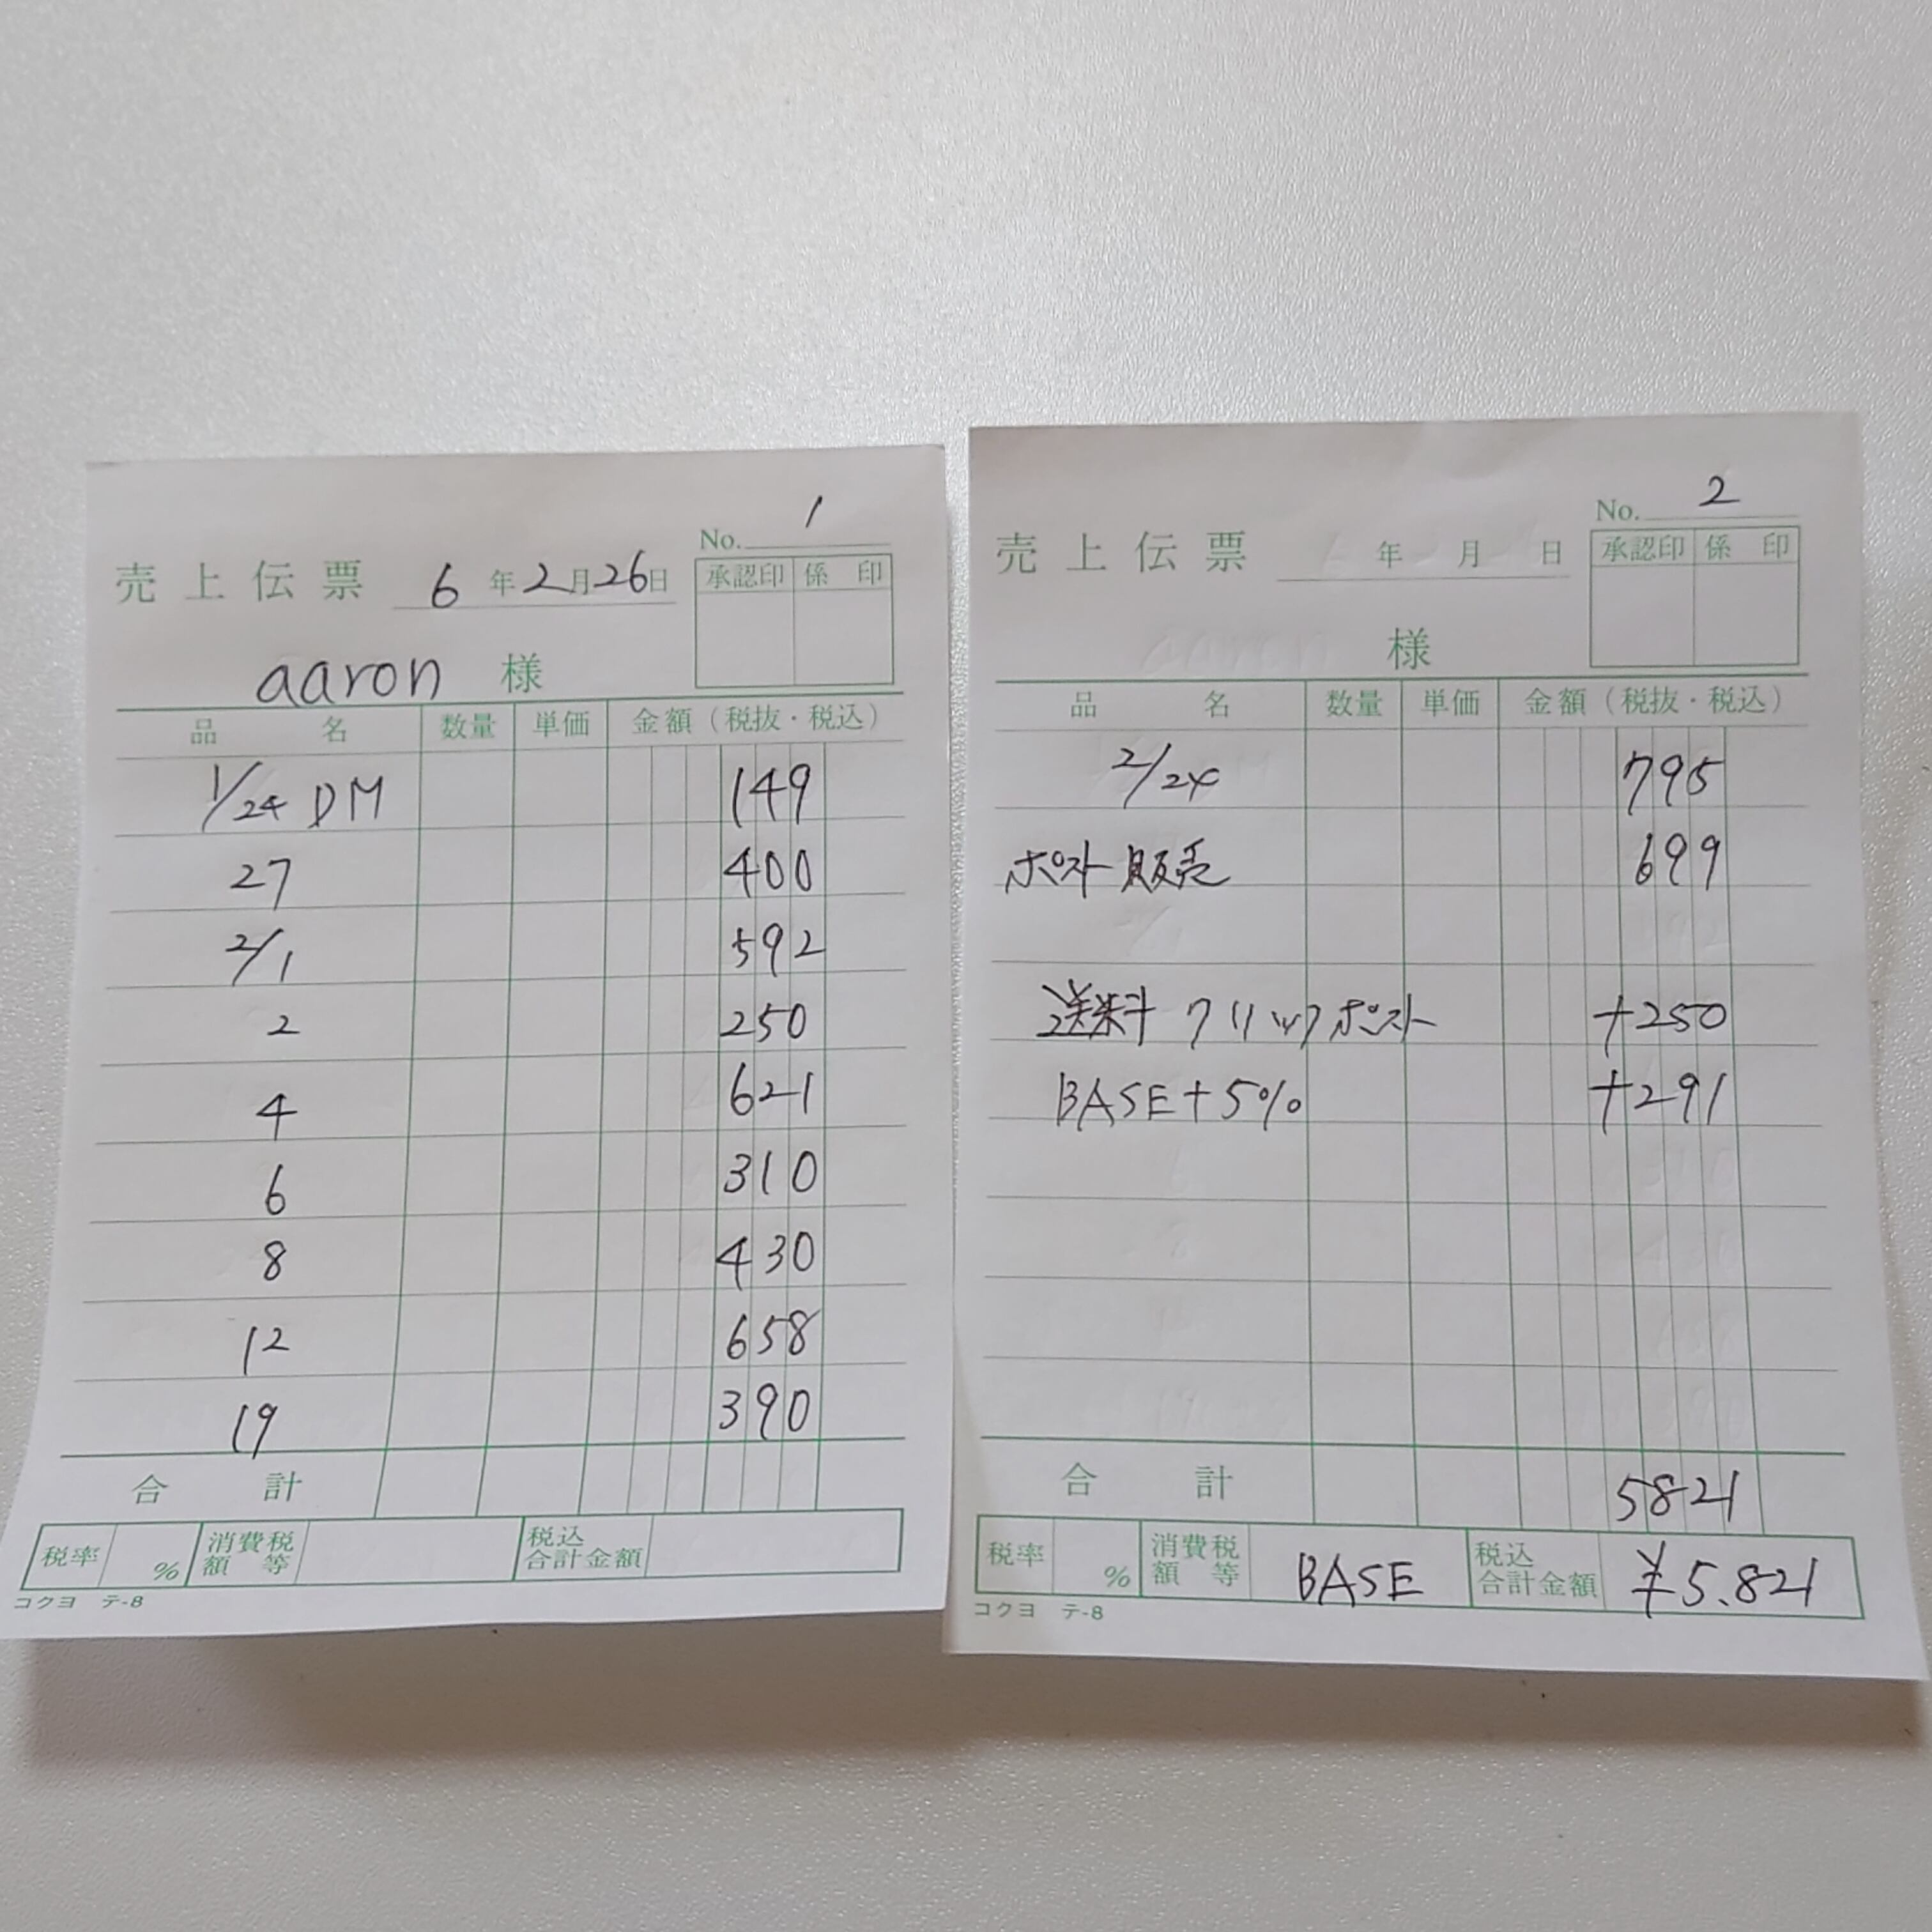 No. 1
売上伝票 6年2月26日
承認印 係印
aaron 様
品名 数量 単価 金額（税抜・税込）
1/24 DM 149
27 400
2/1 592
2 250
4 621
6 310
8 430
12 658
19 390
合計
税率 % 消費税額等 税込合計金額
コクヨ テ-8
No. 2
売上伝票 年 月 日
承認印 係印
様
品名 数量 単価 金額（税抜・税込）
2/24 795
ポスト販売 699
送料 クリックポスト +250
BASE+5% +291
合計 5821
税率 % 消費税額等 BASE 税込合計金額 ¥5.821
コクヨ テ-8